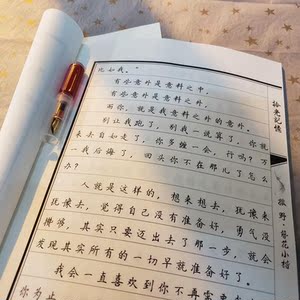 比如我。
有些意外是意料之中。
有些意外是意料之外。
而你，就是我意料之外的意外。
别让我跑了，别我一说算了，你就
来去自如走了，你多缠一会，行吗？万
一我后悔了，回头你不在那儿了怎么
办？
人就是这样的，想来想去，犹豫来
犹豫去，觉得自己没有准备好，勇气没
攒够，其实只要迈出去了那一步，就会
发现其实所有的一切早就准备好了。
我会一直喜欢到你不再需要
你为止
拾光记忆